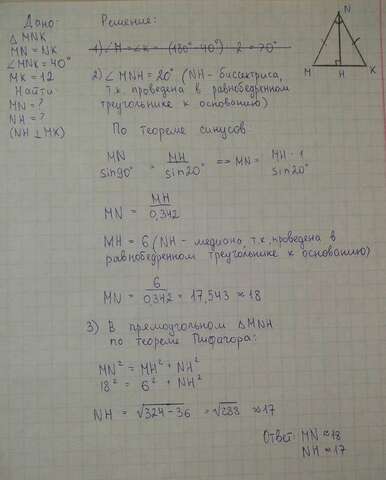 Дано:
△ MNK
MN = NK
∠MNK = 40°
MK = 12
Найти
MN = ?
NH = ?
(NH ⊥ MK)
Решение:
1) ∠M = ∠K = (180° - 40°) : 2 = 70°
2) ∠ MNH = 20° (NH - биссектриса,
т.к. проведена в равнобедренном
треугольнике к основанию)
По теореме синусов
MN / sin90° = MH / sin20° => MN = MH · 1 / sin20°
MN = MH / 0,342
MH = 6 (NH - медиана, т.к. проведена в
равнобедренном треугольнике к основанию)
MN = 6 / 0,342 = 17,543 ≈ 18
3) В прямоугольном △MNH
по теореме Пифагора:
MN² = MH² + NH²
18² = 6² + NH²
NH = √324 - 36 = √288 ≈ 17
Ответ: MN ≈ 18
NH ≈ 17
N
M H K